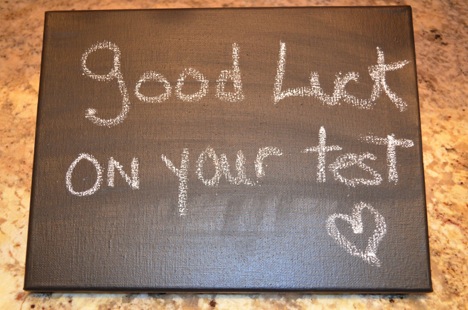 good Luck
ON your test